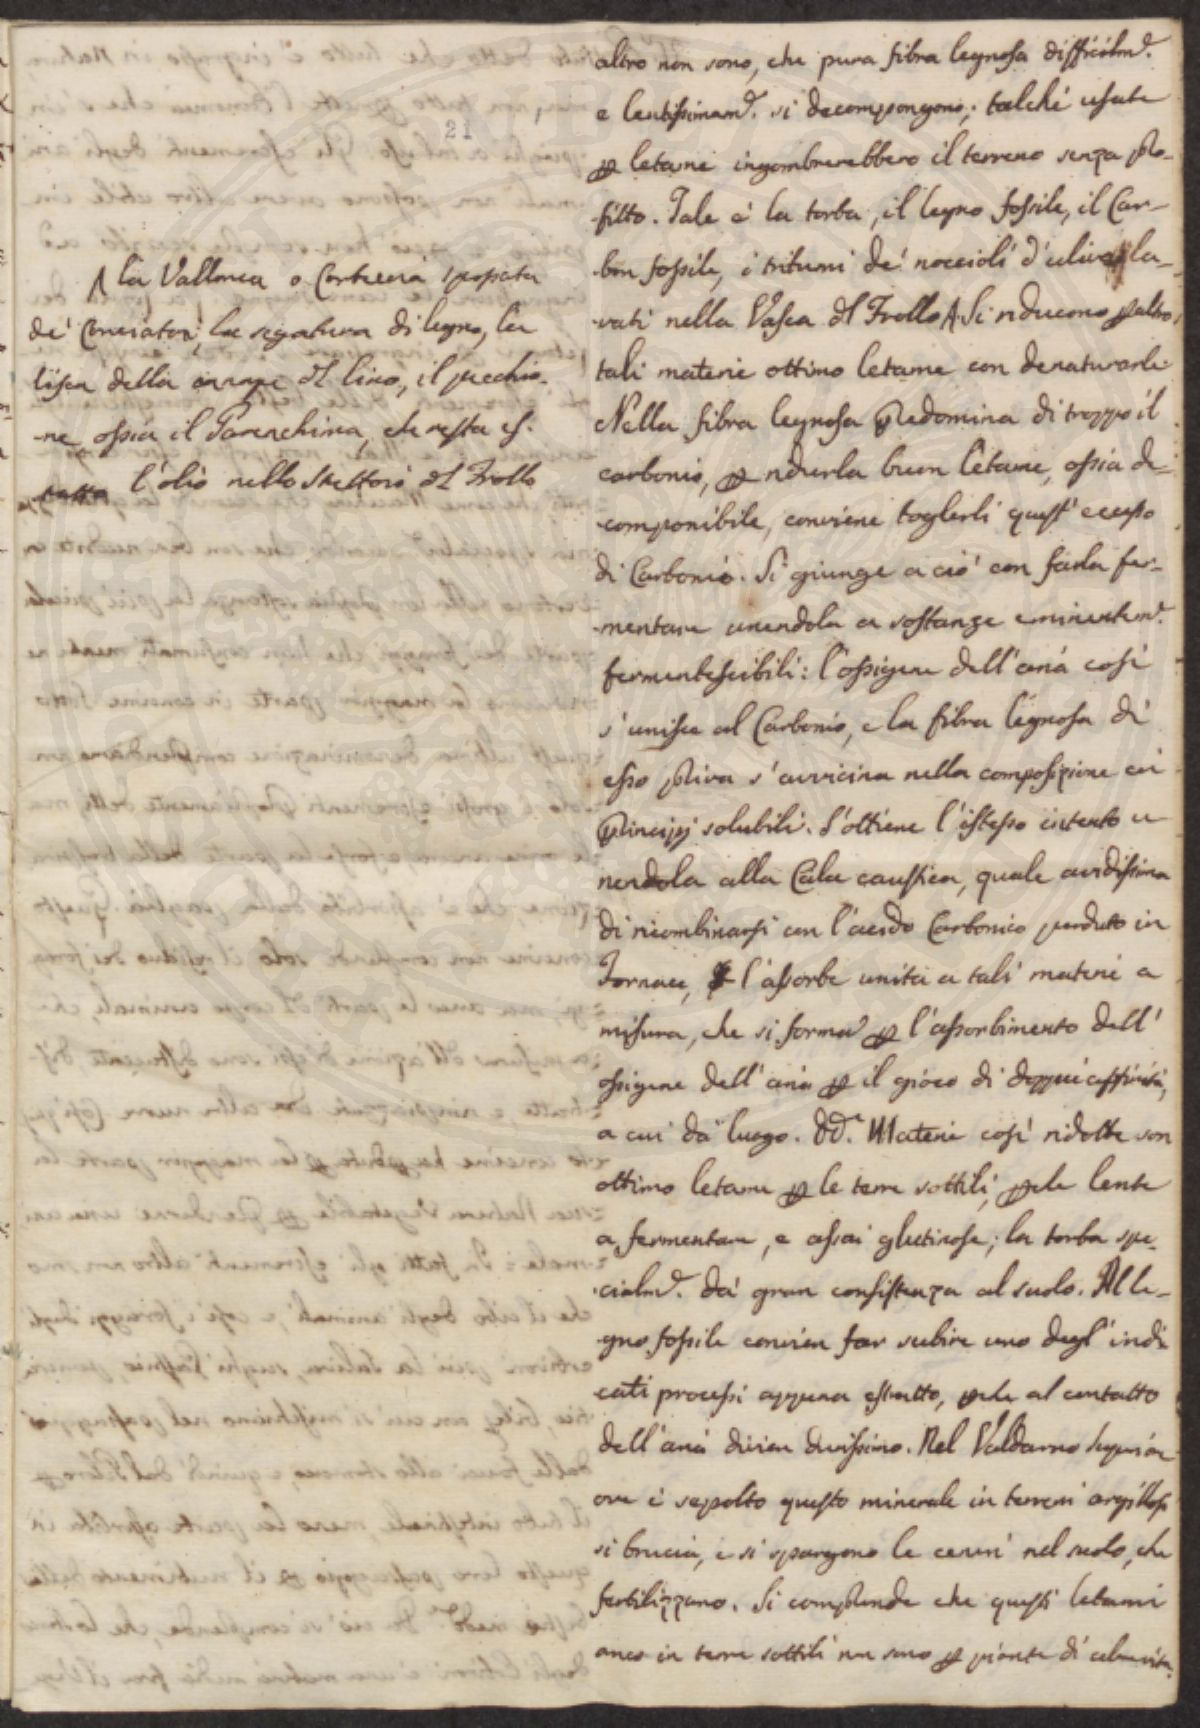 21
altro non sono, che pura fibra legnosa difficilmᵉ.
e lentissimamᵉ. si decompongono; talché usate
ꝑ letame ingombrerebbero il terreno senza pro-
fitto. Tale è la torba, il legno fossile, il Car-
bon fossile, i tritumi de' noccioli d'uliva la-
vati nella Vasca dl Frollo Λ Si riducono ꝑ altro
tali materie ottimo letame con denaturarle
Nella fibra legnosa predomina di troppo il
carbonio, ꝑ ridurla buon letame, ossia de-
componibile, conviene toglierli quest' eccesso
di Carbonio. Si giunge a ciò con farla fer-
mentare unendola a sostanze eminentemᵉ.
fermentescibili: l'ossigene dell'aria così
s'unisce al Carbonio, e la fibra legnosa di
esso priva s'avvicina nella composizione ai
principj solubili. S'ottiene l'istesso intento u
nendola alla Calce caustica, quale avidissima
di ricombinarsi con l'acido Carbonico perduto in
Fornace, l'assorbe unita a tali materie a
misura, che si forma ꝑ l'assorbimento dell'
ossigene dell'aria ꝑ il gioco di doppie affinità,
a cui dà luogo. Ddᵉ. Materie così ridotte son
ottimo letame ꝑ le terre sottili, ꝑche lente
a fermentare, e assai glutinose; la torba spe-
cialmᵉ. dà gran consistenza al suolo. Al le-
gno fossile convien far subire uno degl' indi
cati processi appena estratto, ꝑche al contatto
dell'aria divien durissimo. Nel Valdarno superiore
ove è sepolto questo minerale in terreni argillosi
si brucia, e si spargono le ceneri nel suolo, che
fertilizzano. Si comprende che questi letami
anco in terre sottili non sono ꝑ piante di celere vita.
Λ la Vallonea o Corteccia spossata
de' Conciatori, la segatura di legno, la
lisca della canape dl lino, il pecchio-
ne ossia il Parenchima, che resta es.
l'olio nello Strettoio dl Frollo